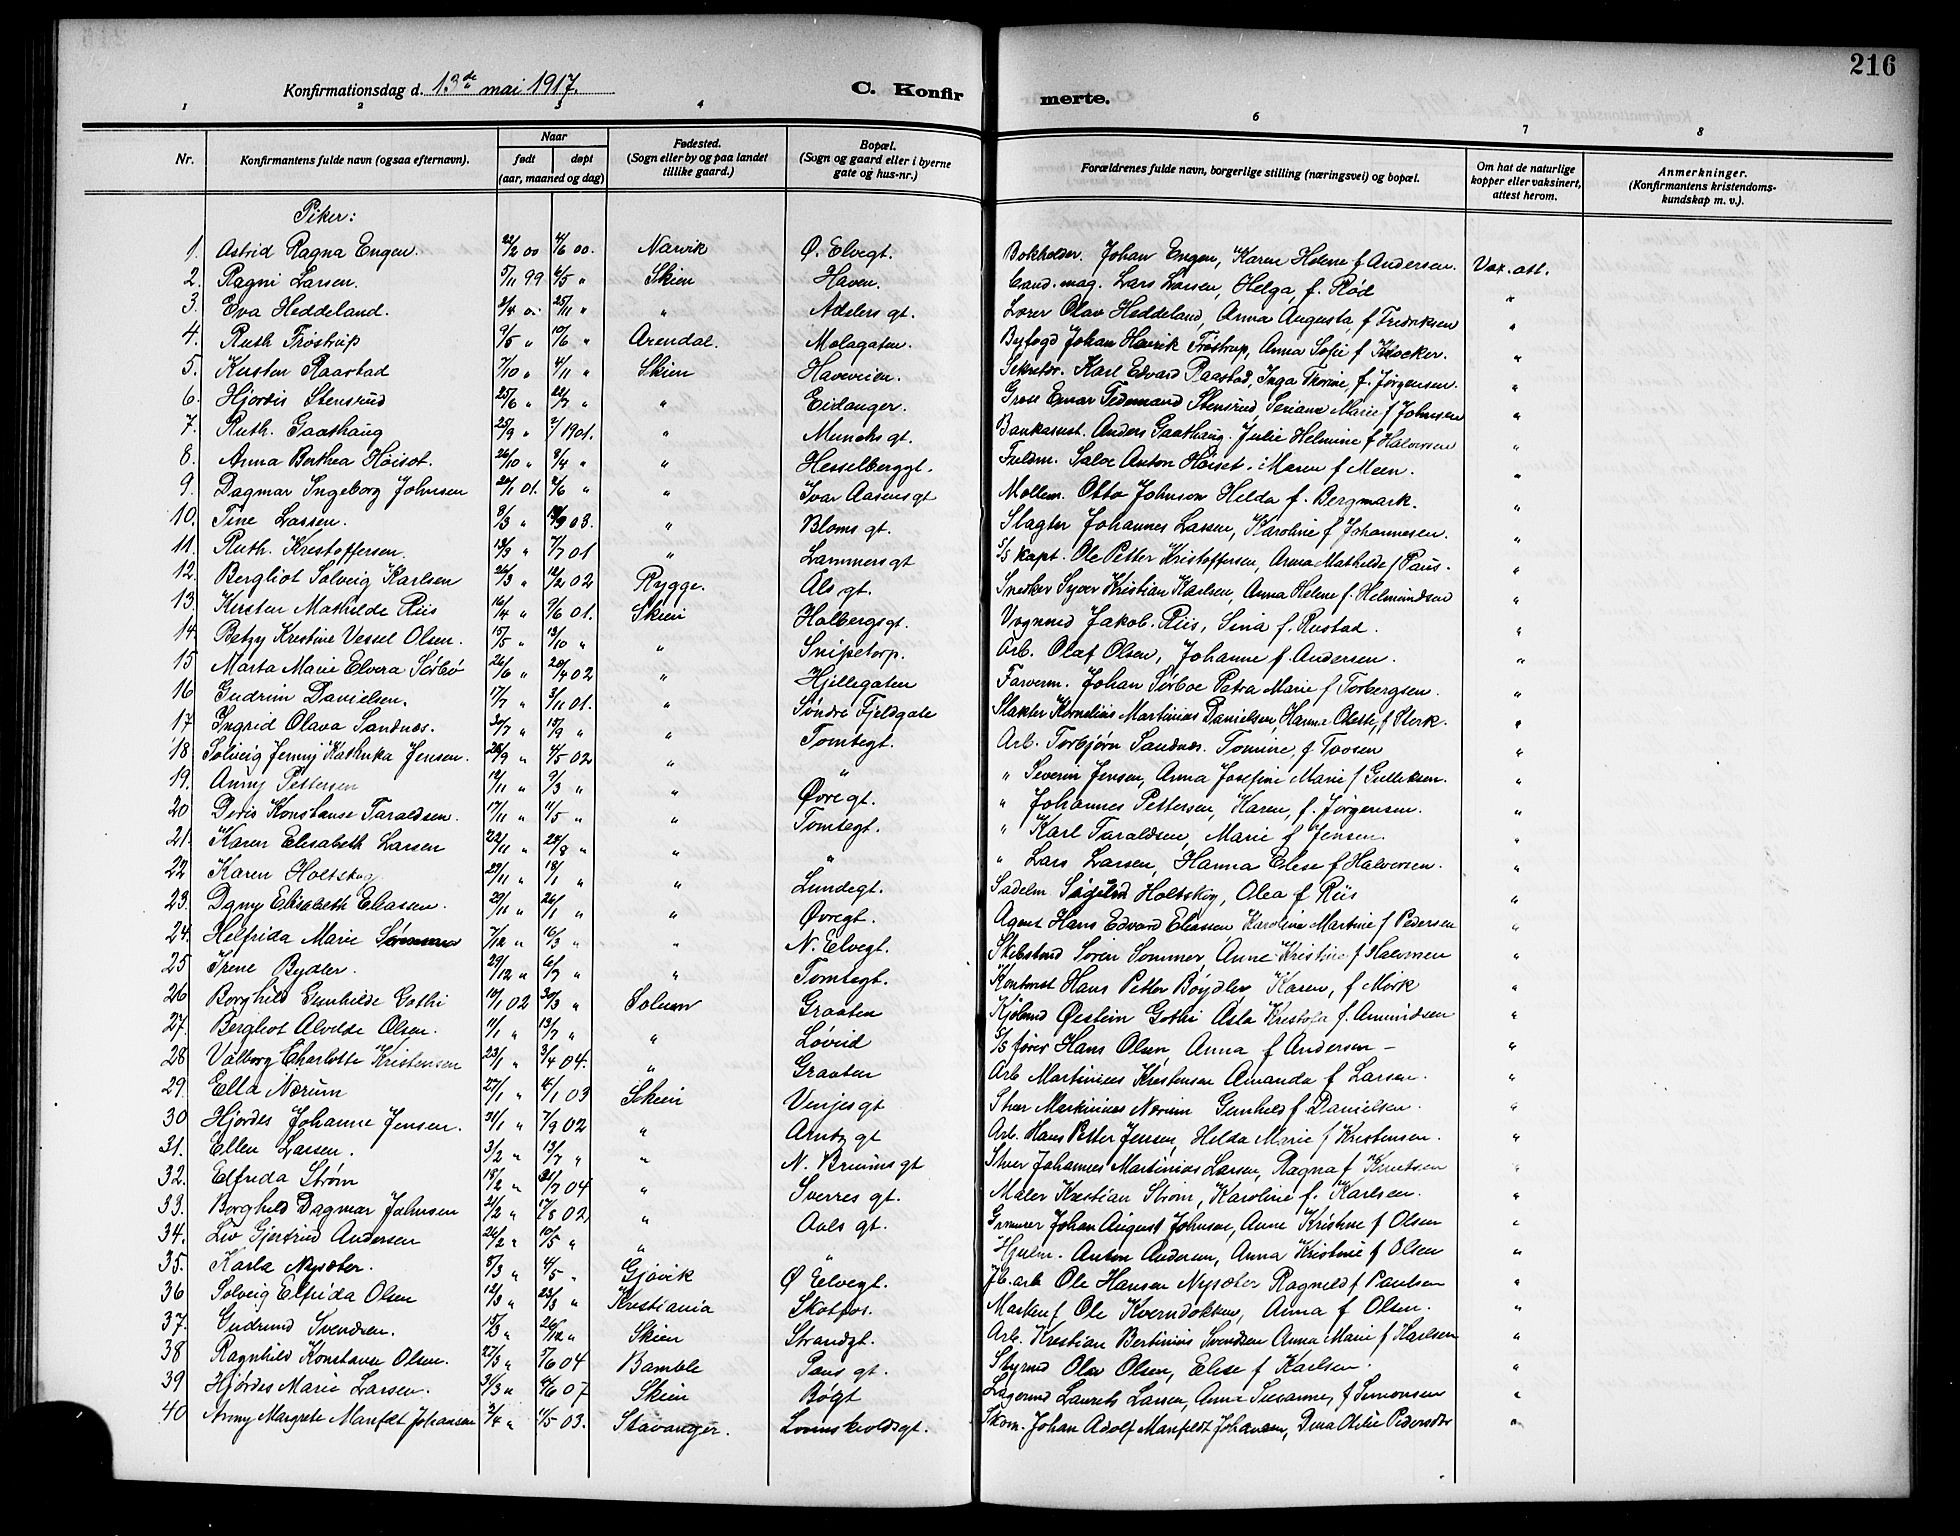 216
Konfirmationsdag d. 13de mai 1917.
C. Konfirmerte.
1 2 3 4 6 7 8
Nr. Konfirmantens fulde navn (ogsaa efternavn). Naar født døpt (aar, maaned og dag) Fødested. (Sogn eller by og paa landet tillike gaard.) Bopæl. (Sogn og gaard eller i byerne gate og hus-nr.) Forældrenes fulde navn, borgerlige stilling (næringsvei) og bopæl. Om hat de naturlige kopper eller vaksinert, attest herom. Anmerkninger. (Konfirmantens kristendoms-kundskap m. v.).
Piker:
1. Astrid Ragna Engen. 22/2 00 4/6 00. Narvik Ø. Elvegt. Bokholder. Johan Engen, Karen Helene f Andersen. Vax. att.
2. Ragni Larsen. 5/11 99 6/5 " Skien Haven. Cand. mag. Lars Larsen, Helga, f. Rød "
3. Eva Heddeland. 2/4 25/11 " " Adelers gt. Lærer Olav Heddeland, Anna Augusta, f Fredriksen "
4. Ruth Frøstrup 9/5 " 10/6 " Arendal. Molagaten. Byfogd Johan Henrik Frøstrup, Anna Sofie f Kløcker. "
5. Kirsten Raastad 7/10 " 4/11 " Skien Haveveien. Sekretær. Karl Edvard Raastad, Inga Thorine, f. Jørgensen. "
6. Hjørdis Stensrud 25/6 " 22/7 " " Eidanger. Gros Einar Tidemand Stensrud, Seriane Marie f Johnsen "
7. Ruth. Gaathaug 25/9 " 2/1 1901. " Munchs gt. Bankassist. Anders Gaathaug. Julie Helmine f Halvorsen "
8. Anna Berthea Høiset. 26/10 " 8/4 " " Hesselberggt. Fuldm. Salve Anton Høiset. Maren f Meen. "
9. Dagmar Ingeborg Johnsen 20/1 01. 2/6 " " Ivar Aasens gt Møllem. Otto Johnson Helda f. Bergmark. "
10. Tine Lassen. 8/3 " 03. " Bloms gt. Slagter Johannes Lassen, Karoline f Johannesen. "
11. Ruth. Kristoffersen. 13/3 " 7/7 01 " Lammers gt S/S kapt. Ole Petter Kristoffersen, Anna Mathilde f Paus. "
12. Bergliot Solveig Karlsen 26/3 " 12/2 02 Rygge. Als. gt. Snekker Syver Kristian Karlsen, Anna Helene f. Helmundsen "
13. Kirsten Mathilde Riis 16/4 " 9/6 01. Skien Holbergsgt. Vognmd Jakob. Riis, Sina f. Rustad. "
14. Betzy Kristine Vessel Olsen. 15/5 " 13/10 " " Snipetorp. Arb. Olaf Olsen, Johanne f Andersen. "
15 Marta Marie Elvera Sørbø 26/6 " 20/4 02 " Hjellegaten Farverm. Johan Sørboe Petra Marie f Torbergsen. "
16 Gudrun Danielsen. 17/7 " 3/11 01. " Søndre Fjeldgate Slakter Kornelius Martinius Danielsen, Hanna Oleste, f Sterk. "
17 Ingrid Olava Sandnes. 30/7 " 15/9 " " Tomtegt. Arb. Torbjørn Sandnes. Tomine f Tovsen "
18. Solveig Jenny Kathinka Jensen. 28/9 " 4/5 02 " " " Severin Jensen, Anna Josefine Marie f Gulliksen. "
19. Anny Pettersen 12/11 " 9/3 " " Øvregt. " Johannes Pettersen, Karen, f. Jørgensen. "
20 Doris Konstanse Taraldsen. 17/11 " 11/5 " " Tomtegt. " Karl Taraldsen, Marie f Jensen. "
21. Karen Elisabeth Larsen 22/11 " 24/8 " " " " Lars Larsen, Hanna Elise f Halvorsen. "
22 Karen Holtskog 27/11 " 18/1 " " Lundegt. Sadelm Sigurd Holtskog, Olea f Riis "
23. Dgny Elisabeth Eliassen. 29/11 " 26/1 " " Øvregt. Agent Hans Edvard Eliassen Karoline Martine f Pedersen "
24. Helfrida Marie Sommer 7/12 " 16/3 " " N. Elvegt. Skibstmd Søren Sommer, Anne Kristine f Halvorsen "
25 Irene Bydler. 29/12 " 6/7 " " Tomtegt. Kontorist Hans Petter Bøydler Karen, f Mørk "
26 Borghild Gunhilde Gothi 10/1 02 30/3 " Solum Graaten Kjølmd Øestein Gothi Asla Kristofa f. Amundsen "
27. Bergliot Alvilde Olsen. 11/1 " 13/7 " " Løvlid S/S fører Hans Olsen, Anna f Andersen - "
28 Valborg Charlotte Kristensen 23/1 " 3/4 04. " Graaten Arb Martinius Kristensen Amanda f Larsen. "
29. Ella Nærum 27/1 " 4/1 03 Skien Venjes gt Stuer Martinius Nærum Gunhild f Danielsen. "
30 Hjørdes Johanne Jensen. 31/1 " 7/9 02 " Arntz gt Arb. Hans Petter Jensen, Helda Marie f Kristensen. "
31. Ellen Larsen. 3/2 " 13/7 " " N. Bruuns gt Stuer Johannes Martinius Larsen, Ragna f Knutsen "
32. Elfrida Strøm 18/2 " 31/7 04 " Sverres gt. Maler Kristian Strøm, Karoline f. Karlsen. "
33. Borghild Dagmar Johnsen 21/2 " 17/8 02 " Aals gt. Grmurer Johan August Johnsen, Anne Kristine f Olsen "
34. Liv Gjertrud Andersen 26/2 " 10/5 " " " Hjulm. Anton Andersen, Anna Kristine f Olsen "
35. Karla Nysæter. 8/3 " 4/5 " Gjøvik Ø Elvegt. Jb. arb Ole Hansen Nysæter Ragnild f Paulsen "
36 Solveig Elfrida Olsen 12/3 " 23/3 " Kristiania Skotfos. Ole Kverndokken, Anna f Olsen. "
37. Gudrund Svendsen. 15/3 " 26/12 " Skien Strandgt. Arb. Kristian Bertinius Svendsen Anna Marie f Karlsen "
38 Ragnhild Konstanse Olsen. 27/3 " 5/6 04 Bamble Paus gt. Styrmd Olav Olsen, Elise f Karlsen. "
39 Hjørdes Marie Larsen. 31/3 " 4/6 07 Skien Bøgt Lagermd Laurits Larsen, Anna Susanne, f Simonsen "
40 Anny Margrete Manfelt Johansen 2/4 " 11/5 03. Stavanger. Løvenskioldsgt. Skom. Johan Adolf Manfeldt Johansen, Dina Otilie Pedersdtr "